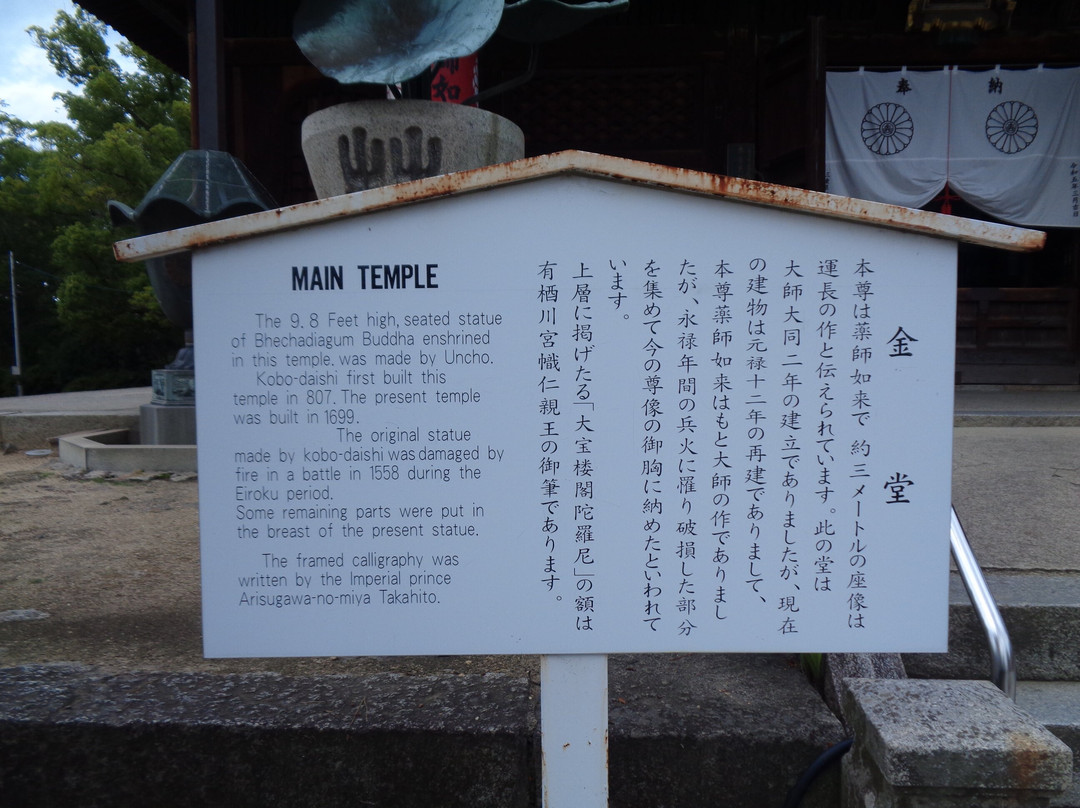 奉納
令和五年三月吉日
MAIN TEMPLE
The 9.8 Feet high, seated statue
of Bhechadiagum Buddha enshrined
in this temple. was made by Uncho.
Kobo-daishi first built this
temple in 807. The present temple
was built in 1699.
The original statue
made by kobo-daishi was damaged by
fire in a battle in 1558 during the
Eiroku period.
Some remaining parts were put in
the breast of the present statue.
The framed calligraphy was
written by the Imperial prince
Arisugawa-no-miya Takahito.
金堂
本尊は薬師如来で 約三メートルの座像は
運長の作と伝えられています。此の堂は
大師大同二年の建立でありましたが、現在
の建物は元禄十二年の再建でありまして、
本尊薬師如来はもと大師の作でありまし
たが、永禄年間の兵火に罹り破損した部分
を集めて今の尊像の御胸に納めたといわれて
います。
上層に掲げたる「大宝楼閣陀羅尼」の額は
有栖川宮幟仁親王の御筆であります。